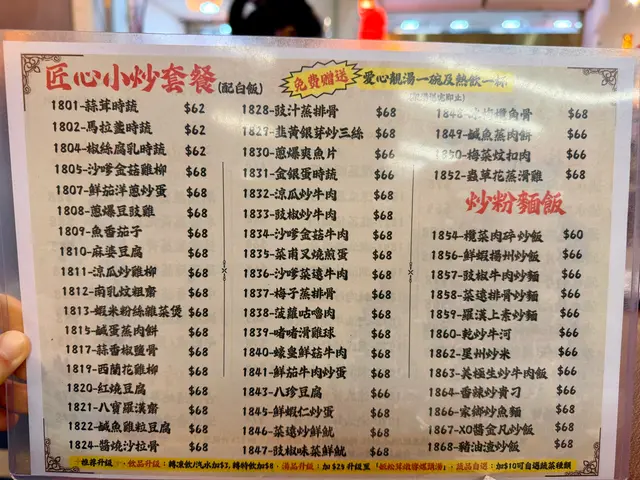 匠心小炒套餐(配白飯)
免費贈送
愛心靚湯一碗及熱飲一杯
1801-蒜茸時蔬 $62
1802-馬拉盞時蔬 $62
1804-椒絲腐乳時蔬 $62
1805-沙嗲金菇雞柳 $68
1807-鮮茄洋蔥炒蛋 $68
1808-蔥爆豆豉雞 $68
1809-魚香茄子 $68
1810-麻婆豆腐 $68
1811-涼瓜炒雞柳 $68
1812-南乳炆粗齋 $68
1813-蝦米粉絲雜菜煲 $68
1815-鹹蛋蒸肉餅 $68
1817-蒜香椒鹽骨 $68
1819-西蘭花雞柳 $68
1820-紅燒豆腐 $68
1821-八寶羅漢齋 $68
1822-鹹魚雞粒豆腐 $68
1824-醬燒沙拉骨 $68
1828-豉汁蒸排骨 $68
1829-韭黃銀芽炒三絲 $68
1830-蔥爆爽魚片 $66
1831-金銀蛋時蔬 $66
1832-涼瓜炒牛肉 $68
1833-豉椒炒牛肉 $68
1834-沙嗲金菇牛肉 $68
1835-菜甫叉燒煎蛋 $68
1836-沙嗲菜遠牛肉 $68
1837-梅子蒸排骨 $68
1838-菠蘿咕嚕肉 $68
1839-啫啫滑雞球 $68
1840-蠔皇鮮菇牛肉 $68
1841-鮮茄牛肉炒蛋 $68
1843-八珍豆腐 $66
1845-鮮蝦仁炒蛋 $68
1846-菜遠炒鮮魷 $68
1847-豉椒味菜鮮魷 $68
$68
1849-鹹魚蒸肉餅 $66
1850-梅菜炆扣肉 $66
1852-蟲草花蒸滑雞 $68
炒粉麵飯
1854-欖菜肉碎炒飯 $60
1856-鮮蝦揚州炒飯 $66
1857-豉椒牛肉炒麵 $66
1858-菜遠排骨炒麵 $66
1859-羅漢上素炒麵 $66
1860-乾炒牛河 $66
1862-星州炒米 $66
1863-美極生炒牛肉飯 $66
1864-香辣炒貴刁 $66
1866-家鄉炒魚麵 $68
1867-XO醬金凡炒飯 $68
1868-豬油渣炒飯 $68
推荐升級 飲品升級：轉凍飲/汽水加$3,轉特飲加$8 湯品升級：加$29升級至 蔬品自選：加$10可自選蔬菜種類